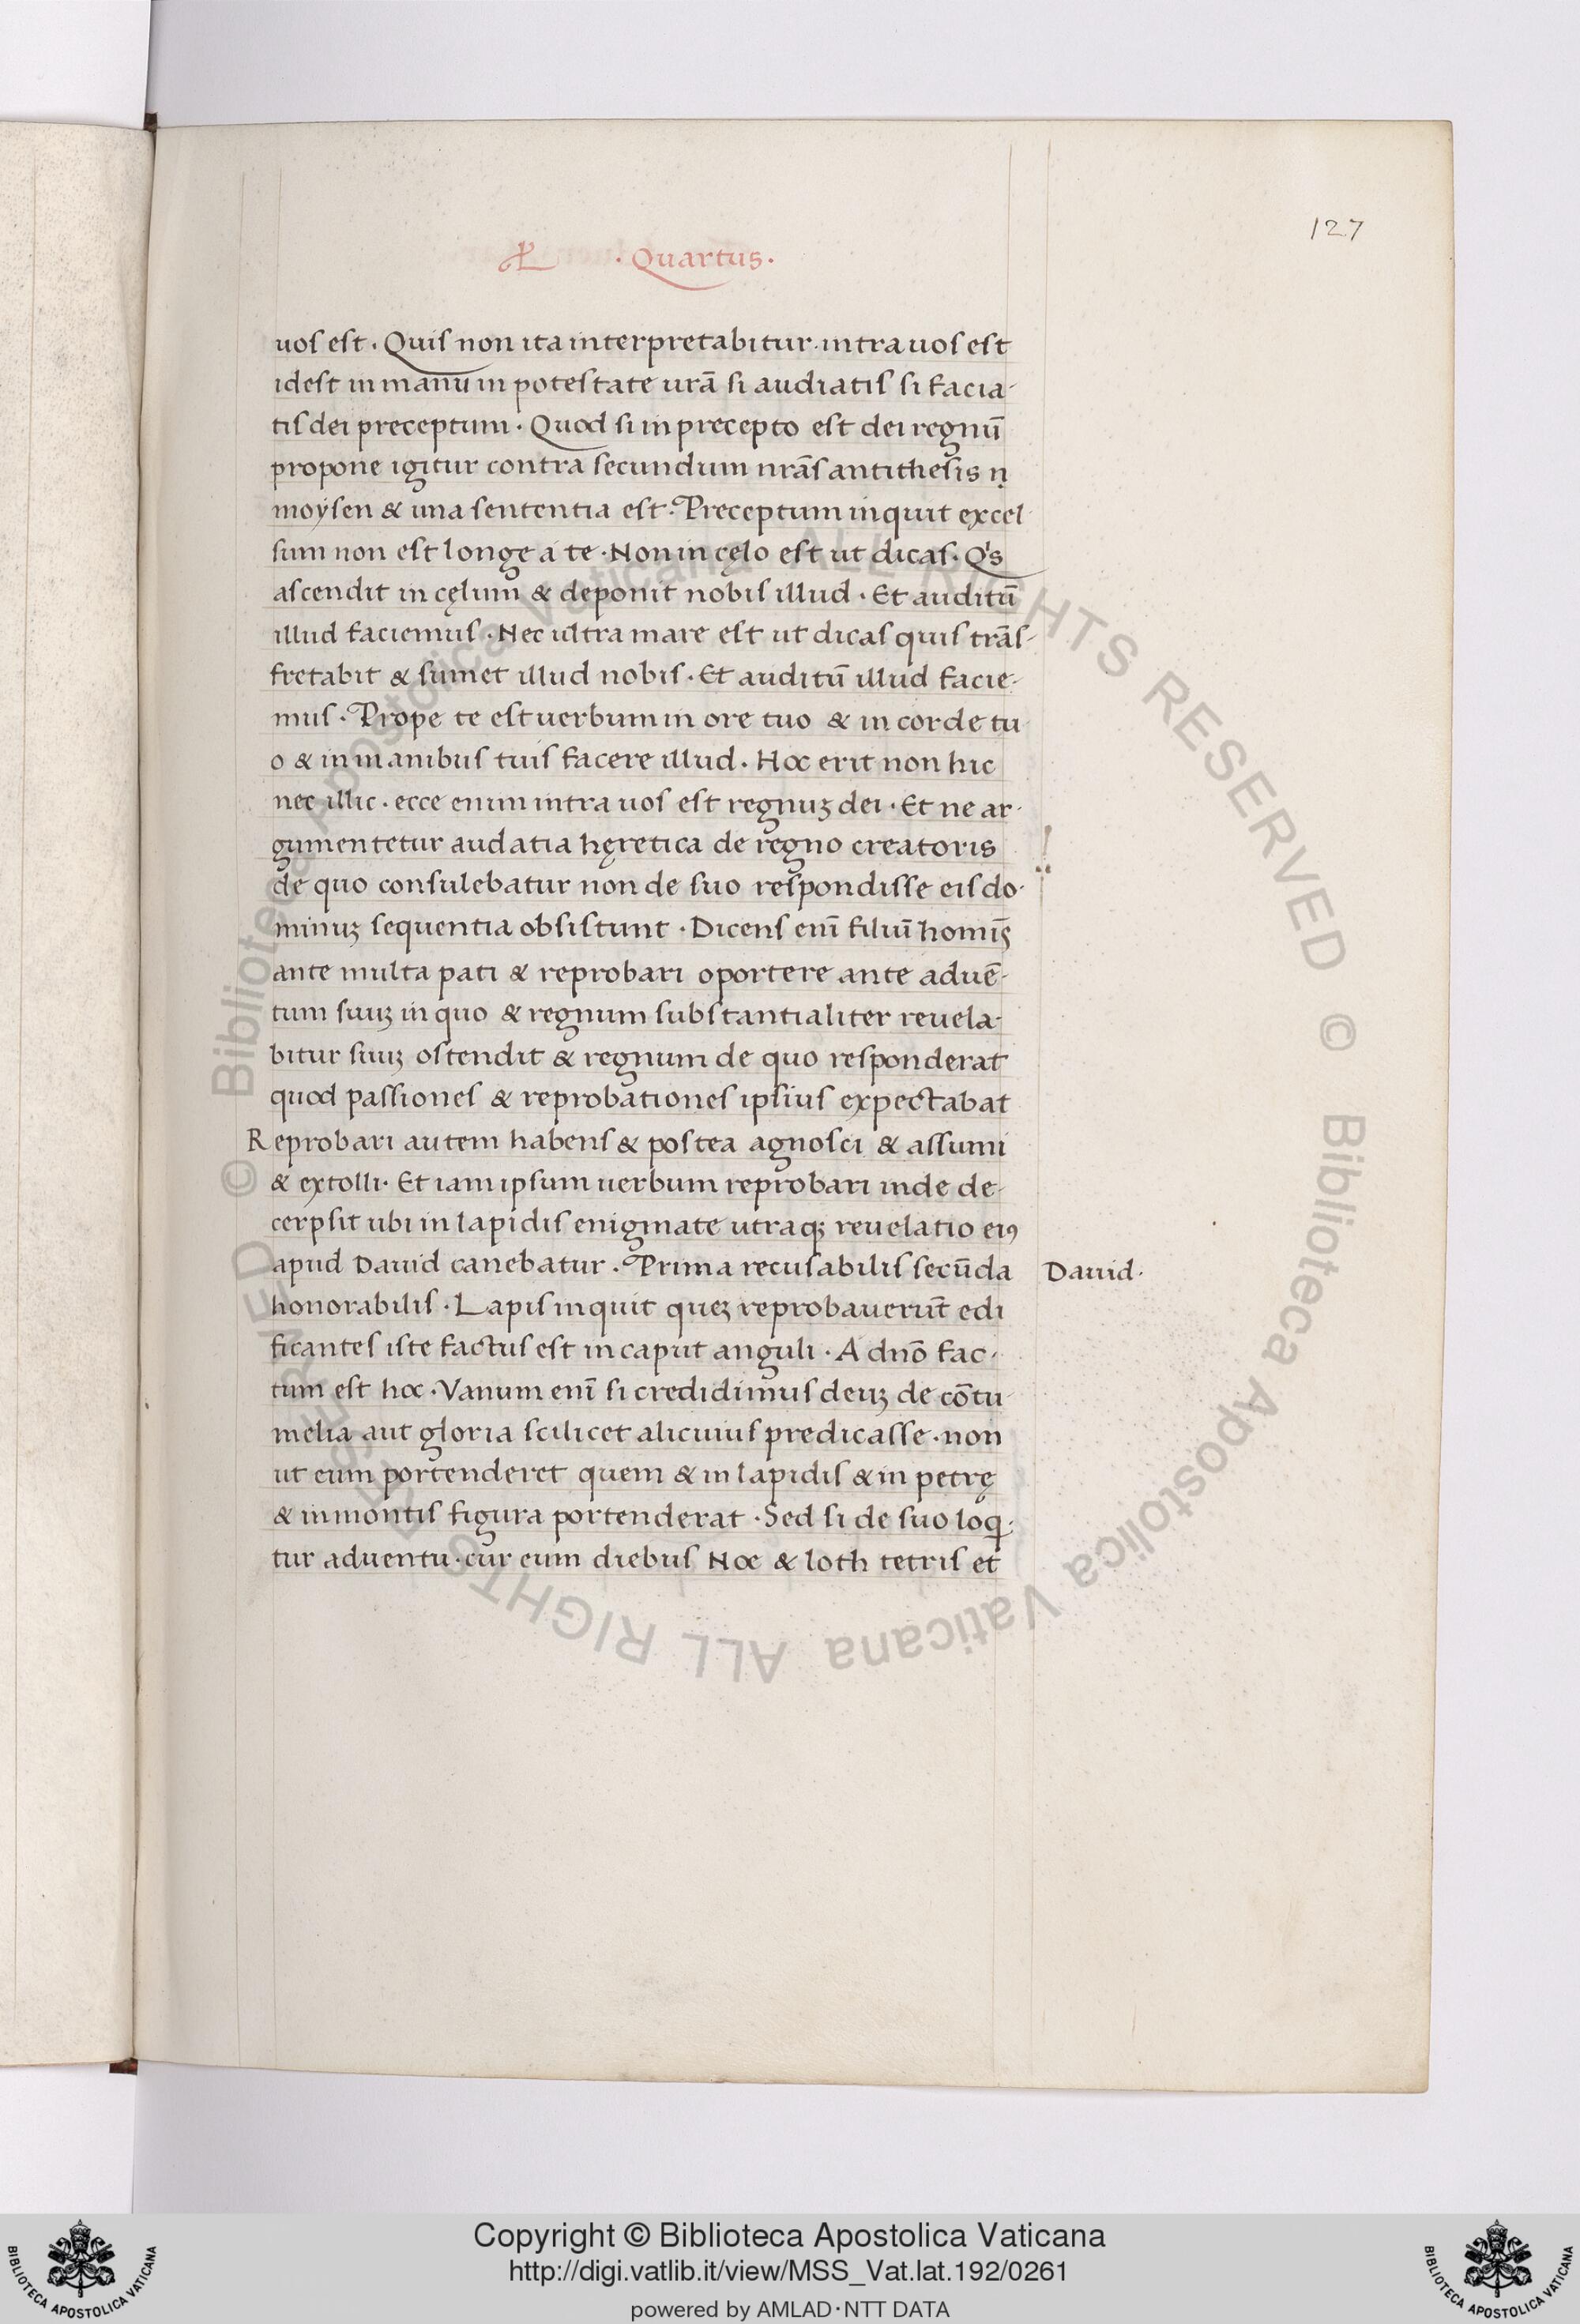 127
· Quartus ·
uos est . Quis non ita interpretabitur . intra uos est
idest in manu in potestate urā si audiatis si facia-
tis dei preceptum · Quod si in precepto est dei regnū
propone igitur contra secundum nrās antithesis
moysen & una sententia est · Preceptum inquit excel
sum non est longe a te · Non in cęlo est ut dicas · Qˈs
ascendit in cęlum & deponit nobis illud · Et auditū
illud faciemus · Nec ultra mare est ut dicas quis trās-
fretabit & sumet illud nobis · Et auditū illud facie-
mus · Prope te est uerbum in ore tuo & in corde tu
o & in manibus tuis facere illud . Hoc erit non hic
nec illic · ecce enim intra uos est regnuꝫ dei · Et ne ar-
gumentetur audatia hęretica de regno creatoris
de quo consulebatur non de suo respondisse eis do-
minuꝫ sequentia obsistunt · Dicens enī filiū homīs
ante multa pati & reprobari oportere ante aduē-
tum suuꝫ in quo & regnum substantialiter reuela-
bitur suuꝫ ostendit & regnum de quo responderat
quod passiones & reprobationes ipsius expectabat
Reprobari autem habens & postea agnosci & assumi
& extolli · Et iam ipsum uerbum reprobari inde de-
cerpsit ubi in lapidis enigmate utraqꝫ reuelatio eiꝰ
apud Dauid canebatur . Prima recusabilis secūda
Dauid ·
honorabilis · Lapis inquit queꝫ reprobauerūt edi
ficantes iste factus est in caput anguli · A dnō fac-
tum est hoc · Vanum enī si credidimus deuꝫ de cōtu
melia aut gloria scilicet alicuius predicasse · non
ut eum portenderet quem & in lapidis & in petrę
& in montis figura portenderat · Sed si de suo loqi-
tur aduentu · cur eum diebus Noe & loth tetris et
© Biblioteca Apostolica Vaticana ALL RIGHTS RESERVED
© Biblioteca Apostolica Vaticana ALL RIGHTS RESERVED
Copyright © Biblioteca Apostolica Vaticana
http://digi.vatlib.it/view/MSS_Vat.lat.192/0261
powered by AMLAD·NTT DATA
BIBLIOTECA APOSTOLICA VATICANA
BIBLIOTECA APOSTOLICA VATICANA